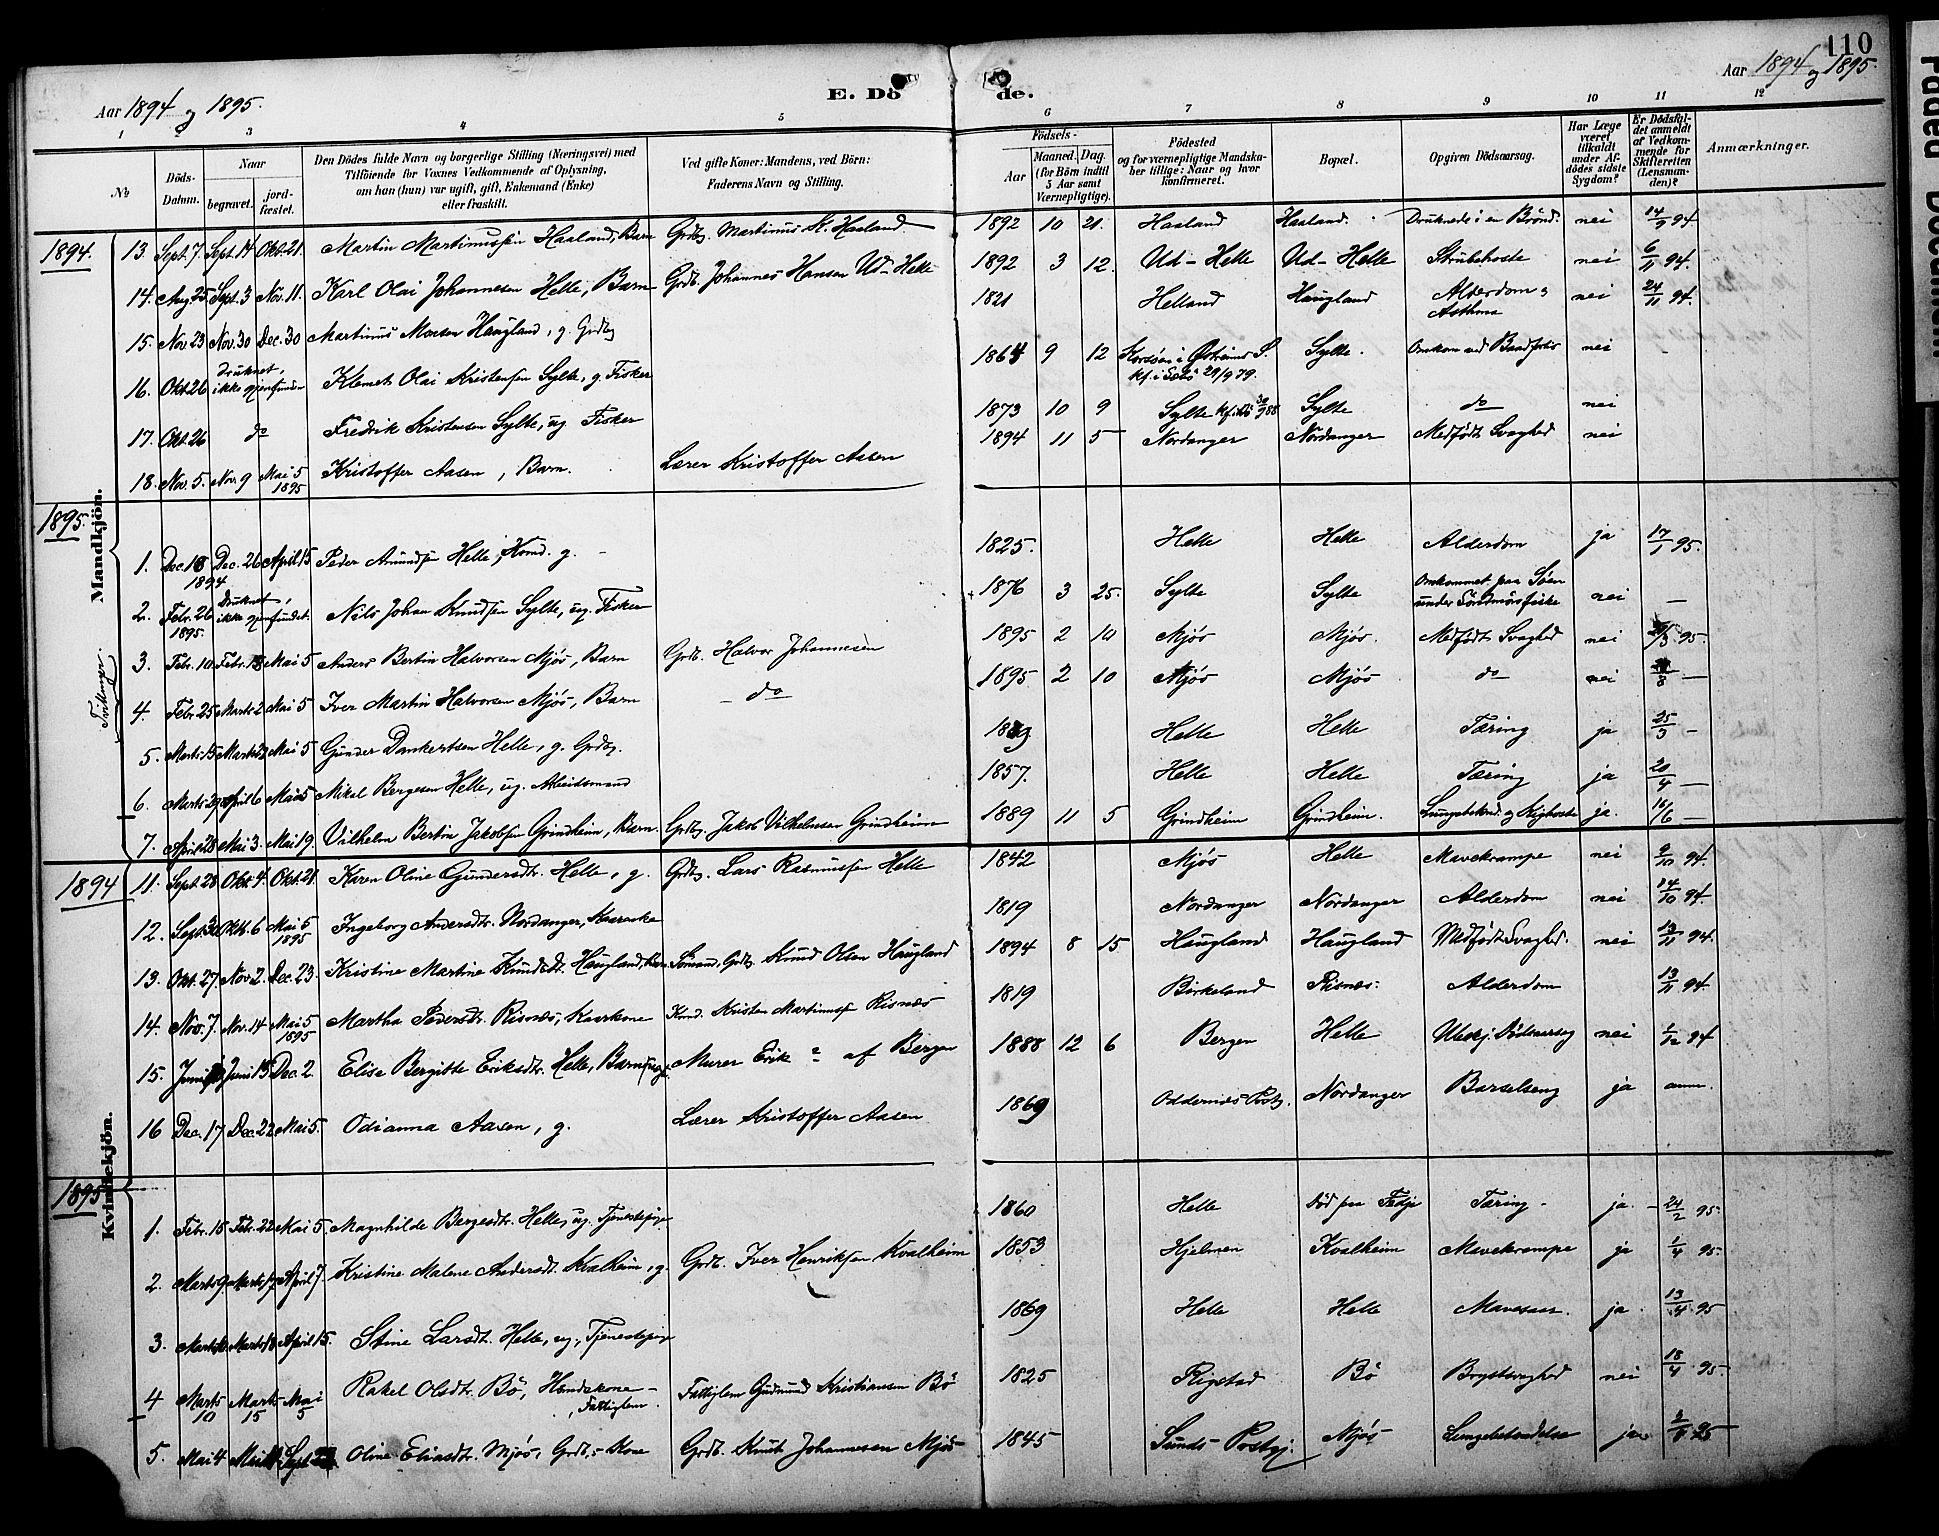 110
Aar 1894 og 1895.
E. Dö de.
Aar 1894 og 1895.
1 2 3 4 5 6 7 8 9 10 11 12
No
Döds-Datum.
Naar
begravet.
jordfæstet.
Den Dödes fulde Navn og borgerlige Stilling (Næringsvei) med
Tilföiende for Voxnes Vedkommende af Oplysning,
om han (hun) var ugift, gift, Enkemand (Enke)
eller fraskilt.
Ved gifte Koner: Mandens, ved Börn:
Faderens Navn og Stilling.
Födsels-
Aar
Maaned. Dag.
(for Börn indtil
5 Aar samt
Værnepligtige).
Födested
og for værnepligtige Mandskaber tillige: Naar og hvor
konfirmeret.
Bopæl.
Opgiven Dödsaarsag.
Har Læge
været
tilkaldt
under Afdödes sidste
Sygdom?
Er Dödsfaldet anmeldt
af Vedkommende for
Skifteretten
(Lensmanden)?
Anmærkninger.
Mandkjön.
1894.
13. Sept. 7. Sept. 14 Okt. 21. Martin Martinussen Haaland, Barn Grdbr. Martinus K. Haaland. 1892 10 21. Haaland Haaland. Druknede i en Brönd. nei 14/9 94.
14. Aug. 25 Sept. 3 Nov. 11. Karl Olai Johannesen Helle, Barn Grdb. Johannes Hansen Ud-Helle 1892 3 12. Ud-Helle Ud-Helle Strubehoste nei 6/11 94.
15. Nov. 23 Nov. 30 Dec. 30 Martinus Monsen Haugland, g. Grdbr 1821 Helland Haugland Alderdom & Asthma nei 24/11 94.
16. Okt. 26 Druknet, ikke gjenfunden Klemet Olai Kristensen Sylte, g. Fisker 1864 9 12 S. kf. i 29/9 79. Sylte. Omkom ved Baadforlis nei -
17. Okt. 26 do Fredrik Kristensen Sylte, ug. Fisker 1873 10 9 Sylte Sylte do nei
18. Nov. 5. Nov. 9 Mai 5 1895 Kristoffer Aasen, Barn. Lærer Kristoffer Aasen 1894 11 5 Nordanger Nordanger Medfödt Svaghed nei
1895.
1. Dec. 18 1894 Dec. 26 April 15 Peder Amundsen Helle, Kond. g. 1825. Helle Helle Alderdom ja 17/1 95.
2. Febr. 26 1895. Druknet, ikke gjenfundet. Nils Johan Knudsen Sylte, ug. Fisker 1876 3 25. Sylte Sylte Omkommet paa Söen under Söndmörsfiske nei -
Tvillinger.
3. Febr. 10 Febr. 18 Mai 5 Anders Bertin Halvorsen Mjös, Barn Grdb. Halvor Johannesen 1895 2 10 Mjös Mjös. Medfödt Svaghed nei /3 95.
4. Febr. 25 Marts 2 Mai 5 Iver Martin Halvorsen Mjös, Barn - do 1895. 2 10 Mjös Mjös do nei /3 -
5. Marts 15 Marts Mai 5 Gunder Dankertsen Helle, g. Grdbr. Helle Helle Tæring ja 25/3 -
6. Marts 29 April 6 Mai 5 Mikal Bergesen Helle, ug. Arbeidsmand 1857. Helle Helle Tæring ja 20/4 -
7. April 28 Mai 3. Mai 19. Vilhelm Bertin Jakobsen Grindheim, Barn. Grdbr. Jakob Vilhelmsen Grindheim 1889 11 5 Grindheim Grindheim. Lungebetænd. og Kighoste ja. 16/6 -
Kvindekjön.
1894
11. Sept. 28 Okt. 4 Okt. 21. Karen Oline Gundersdtr. Helle, g. Grdbr. Lars Rasmussen Helle 1842 Mjös Helle Mavekrampe nei 9/10 94.
12. Sept. 30 Okt. 6 Mai 5 1895 Ingeborg Andersdtr. Nordanger, Kaarenke 1819 Nordanger Nordanger Alderdom nei 14/10 94.
13. Okt. 27. Nov. 2. Dec. 23. Kristine Martine Knudsdtr. Haugland, Barn Sömand, Grdbr. Knud Olsen Haugland 1894 8 15 Haugland Haugland Medfödt Svaghed. nei 13/11 94.
14. Nov. 7. Nov. 14 Mai 5 1895 Martha Pedersdtr. Risnæs, Kaarkone Kond. Kristen Martinussen Risnæs 1819 Birkeland Risnæs. Alderdom 13/11 94.
15. Juni Juni 15 Dec. 2. Elise Bergitte Eriksdtr. Helle, Barn (uægt. Murer Erik ? af Bergen 1888 12 6 Bergen Helle Ubekj. Dödsaarsag nei 1/12 94
16 Dec. 17 Dec. 22 Mai 5. Odianna Aasen, g. Lærer Kristoffer Aasen 1869 Oddernæs Prstgj. Nordanger Barselseng ja anm.
1895
1. Febr. 15 Febr. 22 Mai 5. Magnhilde Bergesdtr. Helle, ug. Tjenestepige 1860 Helle Död paa Fedje Tæring - ja. 24/2 95.
2. Marts 9 Marts 17 April 7. Kristine Malene Andersdtr. Kvalheim, g. Grdb. Iver Henriksen Kvalheim 1853 Hjelmen Kvalheim Mavekrampe ja 1/4 95.
3. Marts Marts 18 April 15. Stine Larsdtr. Helle, ug., Tjenestepige 1869 Helle Helle Mavesaar. ja. 13/4 95
4 Marts 10 Marts 15 Mai 5 Rakel Olsdtr. Bö, Huuskone, Fattiglem. Fattiglem Gudmund Kristiansen Bö 1825 Rigstad Bö Brystsvaghed nei 18/4 95.
5. Mai 4 Mai Sept. Oline Eliasdtr. Mjös, Grdb.s Kone Grdb. Knut Johannesen Mjös 1845 Sunds Prstgj. Mjös Lungebetændelse ja